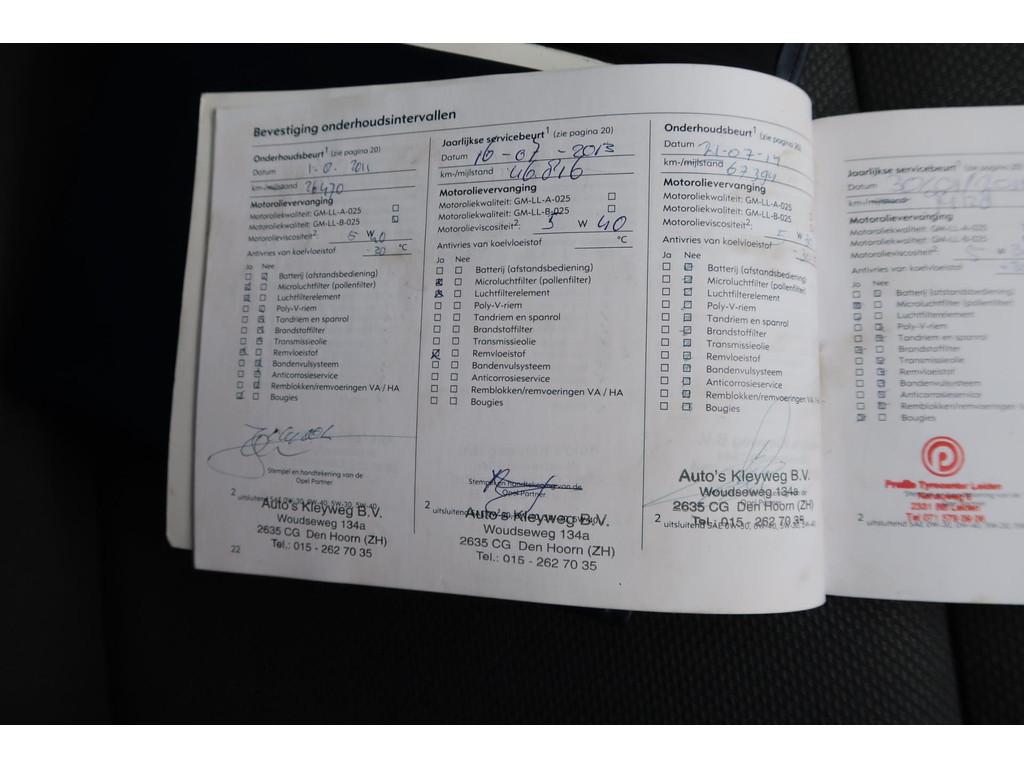 Bevestiging onderhoudsintervallen
Onderhoudsbeurt1 (zie pagina 20)
Datum 2011
km-/mijlstand 26470
Motorolievervanging
Motoroliekwaliteit: GM-LL-A-025
Motoroliekwaliteit: GM-LL-B-025
Motorolieviscositeit2: 5 W 40
Antivries van koelvloeistof -30 °C
Ja Nee
Batterij (afstandsbediening)
Microluchtfilter (pollenfilter)
Luchtfilterelement
Poly-V-riem
Tandriem en spanrol
Brandstoffilter
Transmissieolie
Remvloeistof
Bandenvulsysteem
Anticorrosieservice
Remblokken/remvoeringen VA / HA
Bougies
Stempel en handtekening van de
Opel Partner
2 uitsluitend SAE 0W-30, 0W-40, 5W-30, 5W-40
Auto's Kleyweg B.V.
Woudseweg 134a
2635 CG Den Hoorn (ZH)
Tel.: 015 - 262 70 35
22
Jaarlijkse servicebeurt1 (zie pagina 20)
Datum 16-07-2013
km-/mijlstand 46816
Motorolievervanging
Motoroliekwaliteit: GM-LL-A-025
Motoroliekwaliteit: GM-LL-B-025
Motorolieviscositeit2: W 40
Antivries van koelvloeistof °C
Ja Nee
Batterij (afstandsbediening)
Microluchtfilter (pollenfilter)
Luchtfilterelement
Poly-V-riem
Tandriem en spanrol
Brandstoffilter
Transmissieolie
Remvloeistof
Bandenvulsysteem
Anticorrosieservice
Remblokken/remvoeringen VA / HA
Bougies
Stempel en handtekening van de
Opel Partner
2 uitsluitend
Auto's Kleyweg B.V.
Woudseweg 134a
2635 CG Den Hoorn (ZH)
Tel.: 015 - 262 70 35
Onderhoudsbeurt1 (zie pagina 20)
Datum 21-07-14
km-/mijlstand 67394
Motorolievervanging
Motoroliekwaliteit: GM-LL-A-025
Motoroliekwaliteit: GM-LL-B-025
Motorolieviscositeit2: 5 W
Antivries van koelvloeistof
Ja Nee
Batterij (afstandsbediening)
Microluchtfilter (pollenfilter)
Luchtfilterelement
Poly-V-riem
Tandriem en spanrol
Brandstoffilter
Transmissieolie
Remvloeistof
Bandenvulsysteem
Anticorrosieservice
Remblokken/remvoeringen VA
Bougies
Auto's Kleyweg B.V.
Woudseweg 134a
Opel Partner
2635 CG Den Hoorn (ZH)
2 uitsluitend
Tel.: 015 - 262 70 35
Jaarlijkse servicebeurt1 (zie pagina
Datum
km-/mijlstand
Motorolievervanging
Motoroliekwaliteit: GM-LL-A-025
Motoroliekwaliteit: GM-LL-B-025
Motorolieviscositeit2: 5 W
Antivries van koelvloeistof
Ja Nee
Batterij (afstandsbediening)
Microluchtfilter (pollenfilter)
Luchtfilterelement
Poly-V-riem
Tandriem en spanrol
Brandstoffilter
Transmissieolie
Remvloeistof
Bandenvulsysteem
Anticorrosieservice
Remblokken/remvoeringen
Bougies
Profile Tyrecenter Leiden
Leiden
2 uitsluitend SAE 0W-30, 0W-40